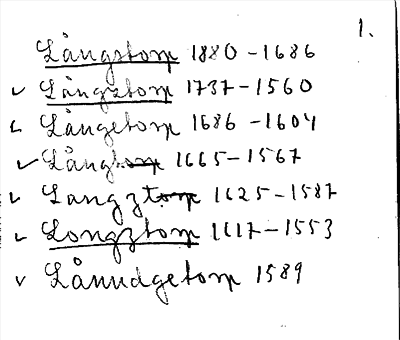 1.
Långstorp 1880-1686
✓ Långztorp 1737-1560
✓ Långetorp 1686-1604
✓ Långtorp 1665-1567
✓ Langztorp 1625-1587
✓ Longztorp 1617-1553
✓ Lånndgetorp 1589